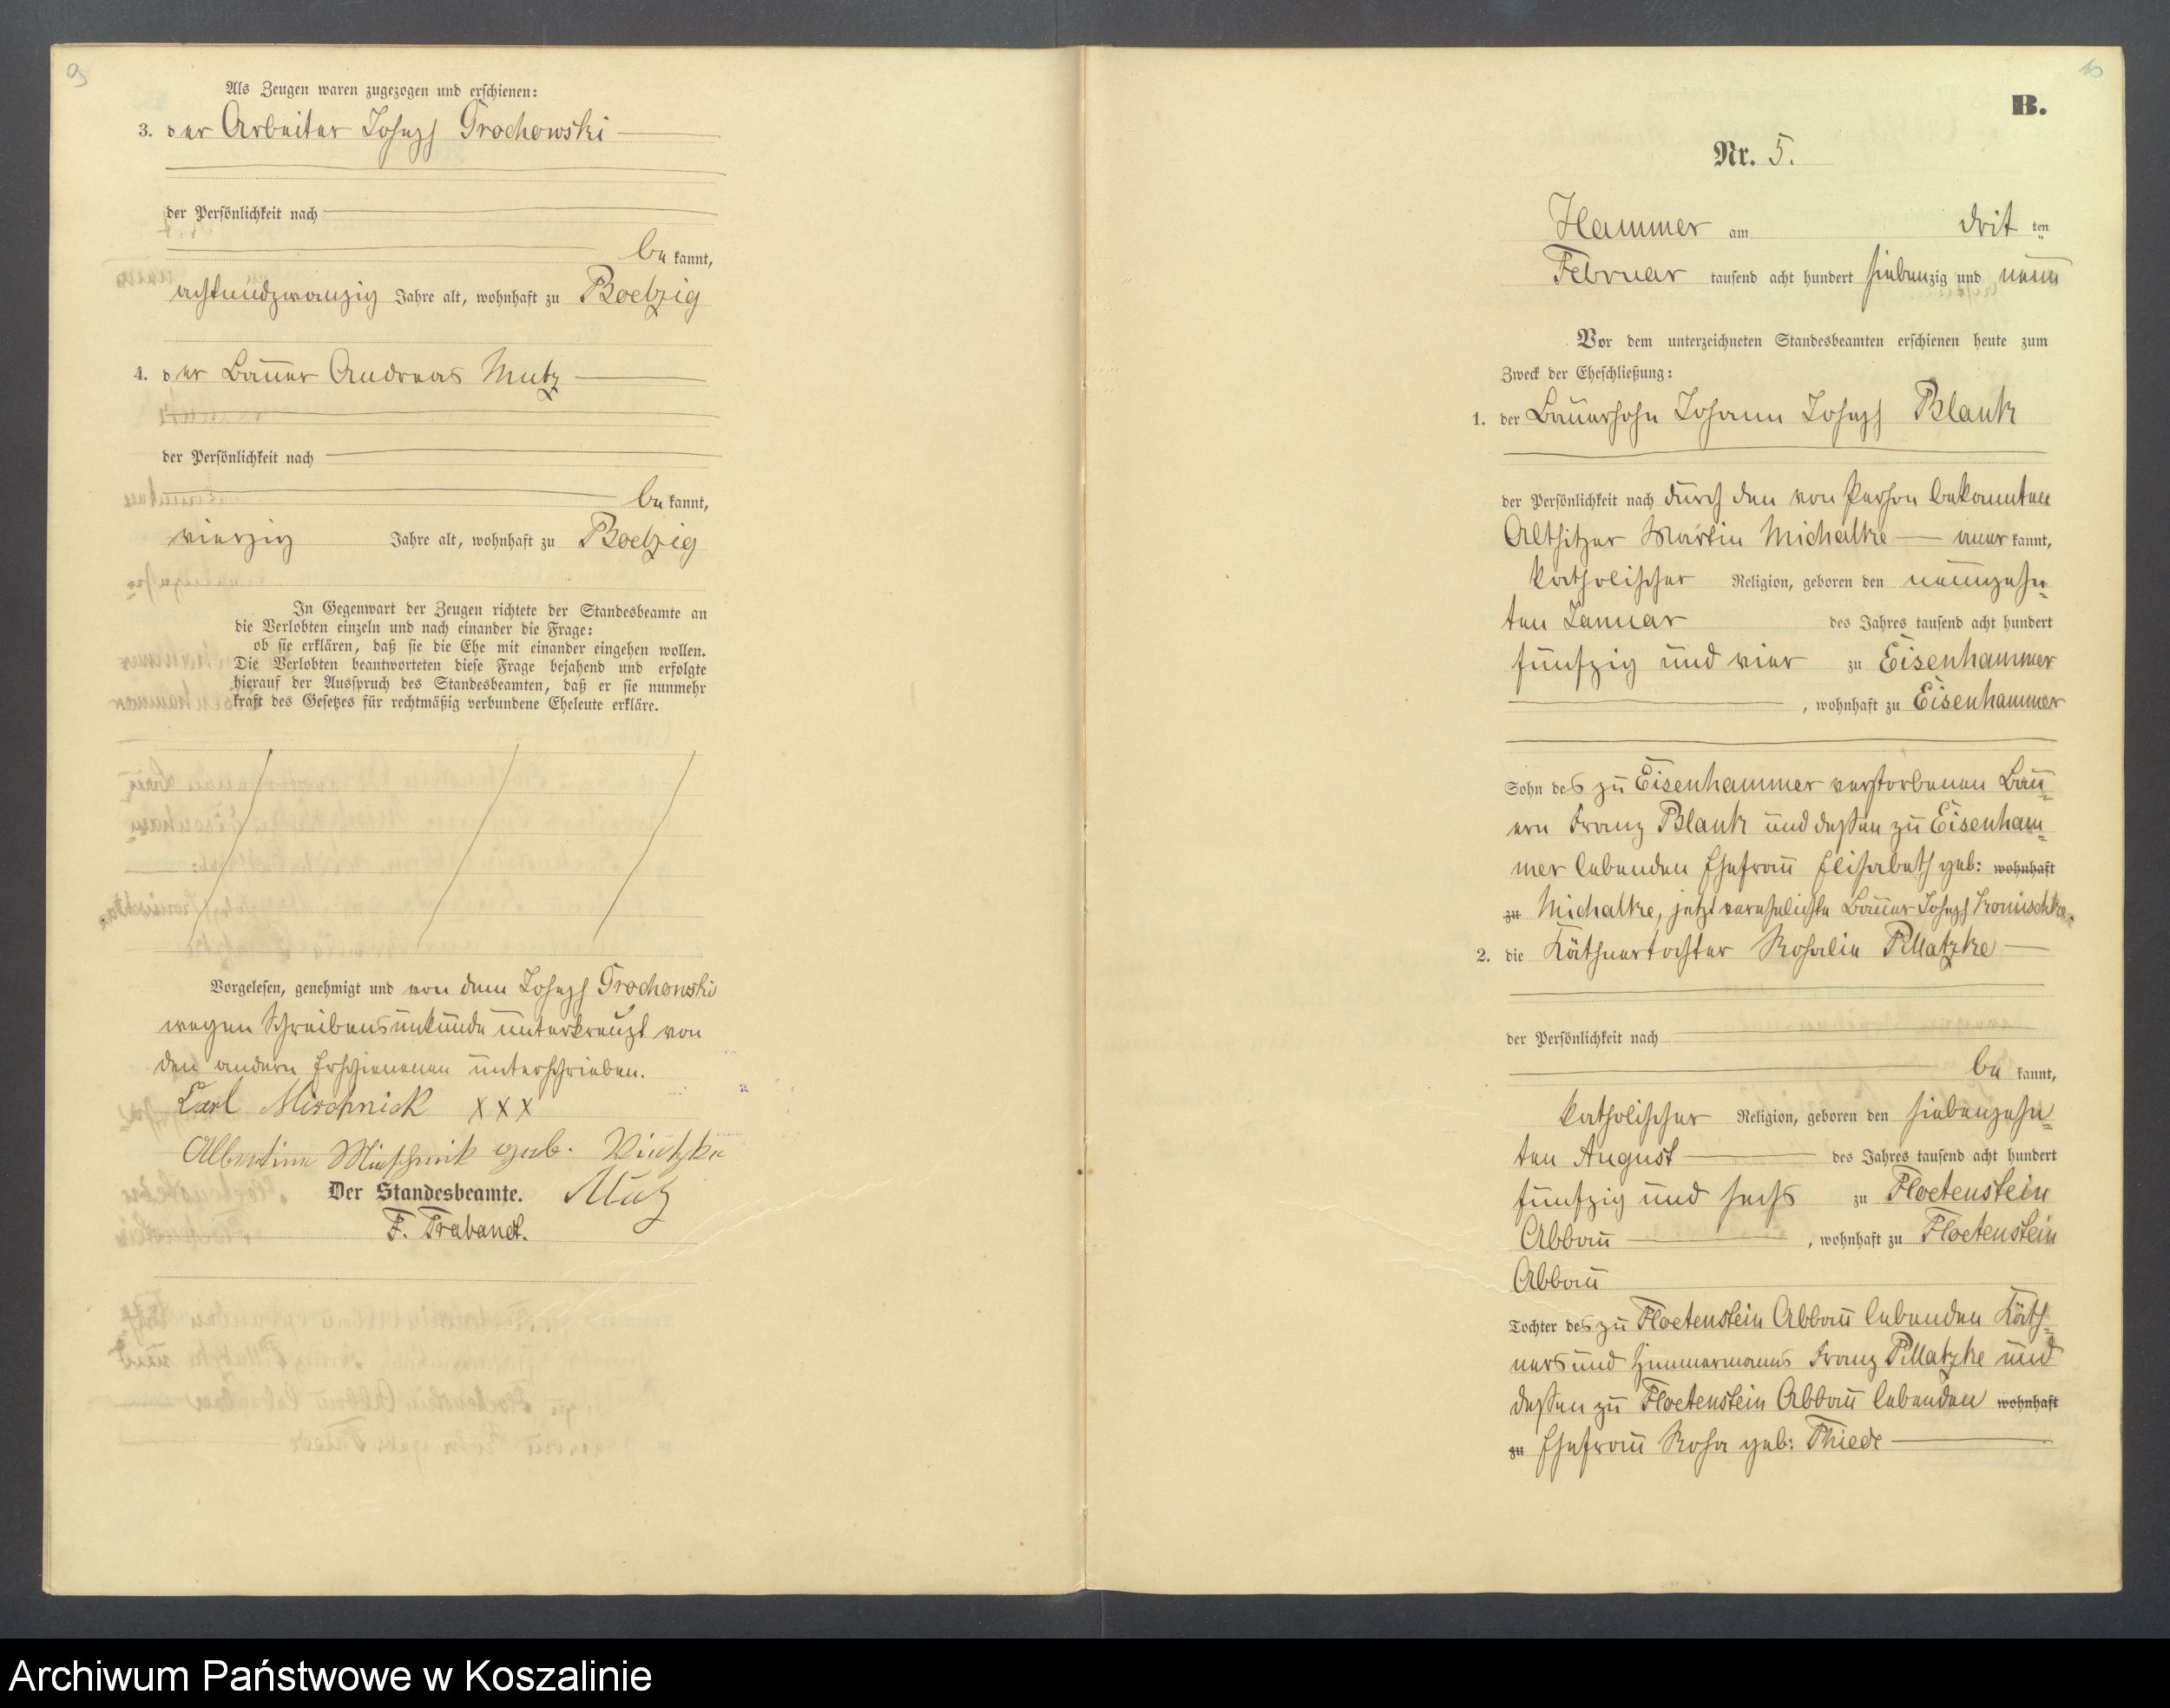 9
Als Zeugen waren zugezogen und erschienen:
3. der Arbeiter Joseph Grochowski
der Persönlichkeit nach
be kannt,
achtundzwanzig Jahre alt, wohnhaft zu Boelzig
4. der Bauer Andreas Mutz
der Persönlichkeit nach
be kannt,
vierzig Jahre alt, wohnhaft zu Boelzig
In Gegenwart der Zeugen richtete der Standesbeamte an
die Verlobten einzeln und nach einander die Frage:
ob sie erklären, daß sie die Ehe mit einander eingehen wollen.
Die Verlobten beantworteten diese Frage bejahend und erfolgte
hierauf der Ausspruch des Standesbeamten, daß er sie nunmehr
kraft des Gesetzes für rechtmäßig verbundene Eheleute erkläre.
Vorgelesen, genehmigt und von dem Joseph Grochowski
wegen Schreibensunkunde unterkreuzt von
den andern Erschienenen unterschrieben.
Carl Mischnick XXX
Albertine Mischnik geb.
Der Standesbeamte. Mutz
F. Trabandt.
10
B.
Nr. 5.
Hammer am drit ten
Februar tausend acht hundert siebenzig und neun
Vor dem unterzeichneten Standesbeamten erschienen heute zum
Zweck der Eheschließung:
1. der Bauersohn Johann Joseph Blank
der Persönlichkeit nach durch den von Person bekannten
Altsitzer Martin Michalke — aner kannt,
katholischer Religion, geboren den neunzehn-
ten Januar des Jahres tausend acht hundert
fünfzig und vier zu Eisenhammer
, wohnhaft zu Eisenhammer
Sohn des zu Eisenhammer verstorbenen Bau-
ern Franz Blank und dessen zu Eisenham-
mer lebenden Ehefrau Elisabeth geb: wohnhaft
zu Michalke, jetzt verehelichte Bauer Joseph Konischke.
2. die Käthnertochter Rosalie Pillatzke
der Persönlichkeit nach
be kannt,
katholischer Religion, geboren den siebenzehn-
ten August des Jahres tausend acht hundert
fünfzig und sechs zu Floetenstein
Abbau , wohnhaft zu Floetenstein
Abbau
Tochter des zu Floetenstein Abbau lebenden Käth-
ners und Zimmermanns Franz Pillatzke und
dessen zu Floetenstein Abbau lebenden wohnhaft
zu Ehefrau Rosa geb: Thiede
Archiwum Państwowe w Koszalinie